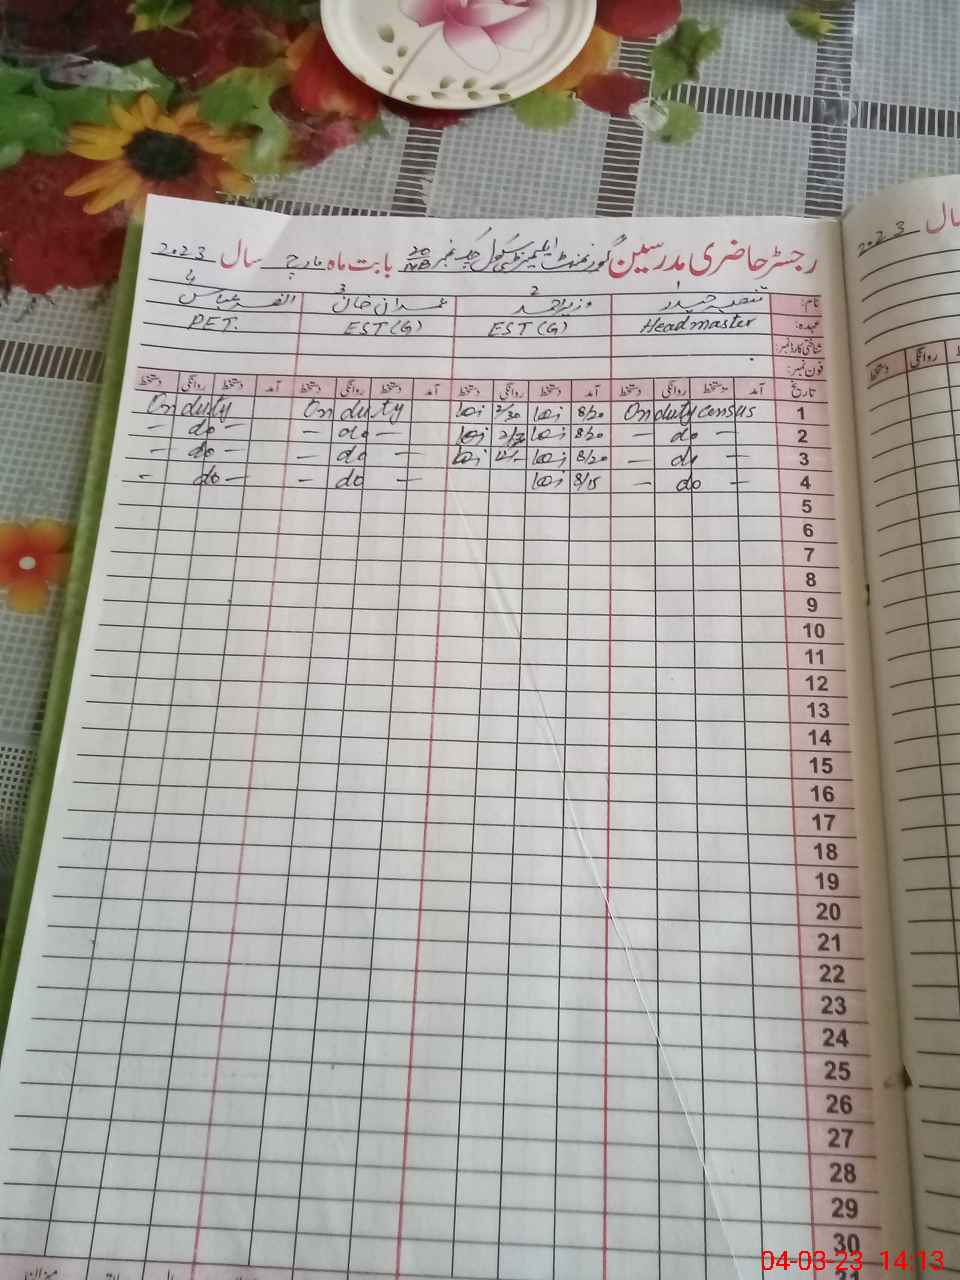 رجسٹر حاضری مدرسین گورنمنٹ ایلیمنٹری سکول چک نمبر 20/NB بابت ماہ مارچ سال 2023
نام: 1 حیدر 2 وزیر احمد 3 عمران خان 4 عباس
عہدہ: Headmaster EST (G) EST (G) PET.
شناختی کارڈ نمبر:
فون نمبر:
تاریخ آمد دستخط روانگی دستخط آمد دستخط روانگی دستخط آمد دستخط روانگی دستخط آمد دستخط روانگی دستخط
1 On duty census 8/20 2/30 On duty On duty
2 — do — 8/20 — do — — do —
3 — do — 8/20 — do — — do —
4 — do — 8/15 — do — — do —
5
6
7
8
9
10
11
12
13
14
15
16
17
18
19
20
21
22
23
24
25
26
27
28
29
30
31
04-03-23 14:13
2023
سال
روانگی دستخط